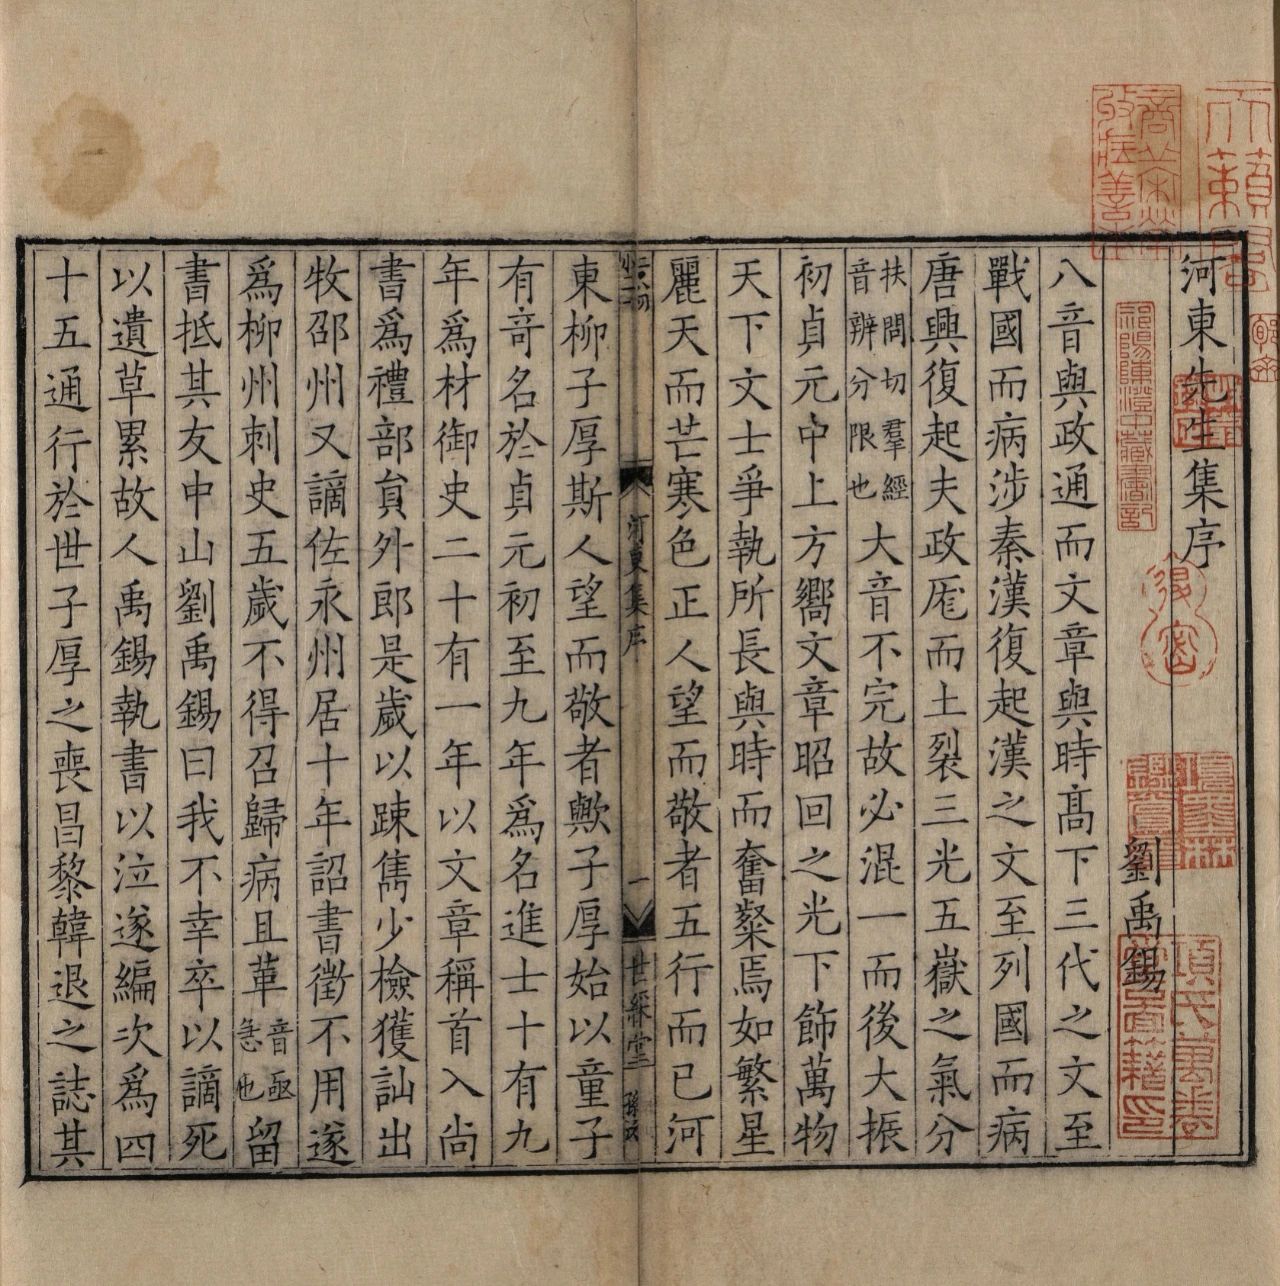 河東先生集序
劉禹錫
八音與政通而文章與時髙下三代之文至
戰國而病涉秦漢復起漢之文至列國而病
唐興復起夫政厖而土裂三光五嶽之氣分
扶問切羣經
音辨分限也
大音不完故必混一而後大振
初貞元中上方嚮文章昭回之光下飾萬物
天下文士爭執所長與時而奮粲焉如繁星
麗天而芒寒色正人望而敬者五行而已河
河東集序
一
世綵堂
東柳子厚斯人望而敬者歟子厚始以童子
有竒名於貞元初至九年爲名進士十有九
年爲材御史二十有一年以文章稱首入尚
書爲禮部負外郎是歲以踈雋少檢獲訕出
牧邵州又謫佐永州居十年詔書徵不用遂
爲柳州刺史五歲不得召歸病且革
音亟
急也
留
書抵其友中山劉禹錫曰我不幸卒以謫死
以遺草累故人禹錫執書以泣遂編次爲四
十五通行於世子厚之喪昌黎韓退之誌其
項氏萬卷
堂圖籍印
祁陽陳澄中藏書記
項墨林